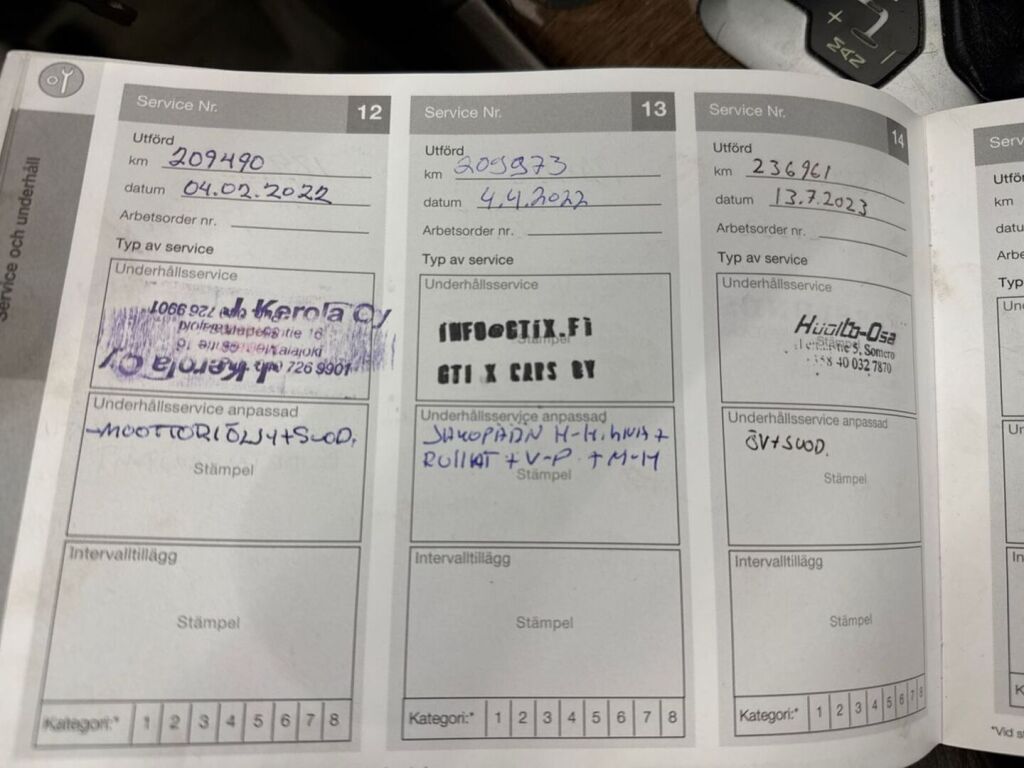 MAX
Service och underhåll
Service Nr. 12
Utförd
km 209490
datum 04.02.2022
Arbetsorder nr.
Typ av service
Underhållsservice
J. Kerola Oy
726 9901
Underhållsservice anpassad
-MOOTTORIÖLJY+SUOD.
Stämpel
Intervalltillägg
Stämpel
Kategori:* 1 2 3 4 5 6 7 8
Service Nr. 13
Utförd
km 209973
datum 4.4.2022
Arbetsorder nr.
Typ av service
Underhållsservice
INFO@GTIX.FI
Stämpel
GTI X CARS OY
Underhållsservice anpassad
JAKOPÄÄN H-HIHNA+
RULLAT + V-P. + M-H
Stämpel
Intervalltillägg
Stämpel
Kategori:* 1 2 3 4 5 6 7 8
Service Nr. 14
Utförd
km 236961
datum 13.7.2023
Arbetsorder nr.
Typ av service
Underhållsservice
Huolto-Osa
5, Somero
40 032 7870
Underhållsservice anpassad
ÖV+SUOD.
Stämpel
Intervalltillägg
Stämpel
Kategori:* 1 2 3 4 5 6 7 8
Serv
Utför
km
datu
Arbe
Typ
Un
Un
In
K
*Vid s